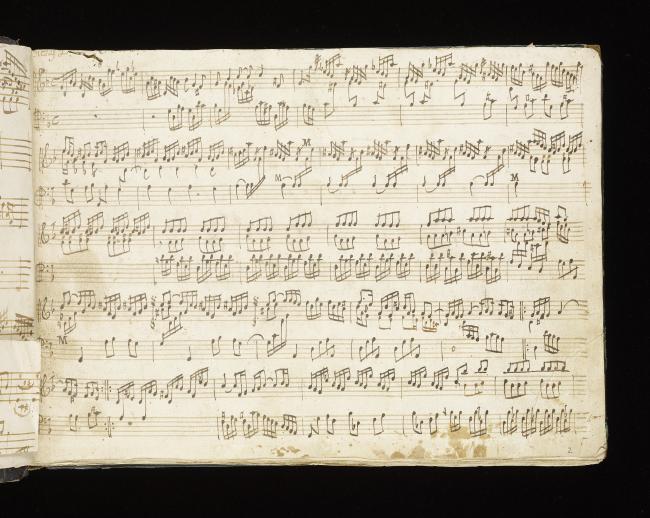 M
M
M
M
2